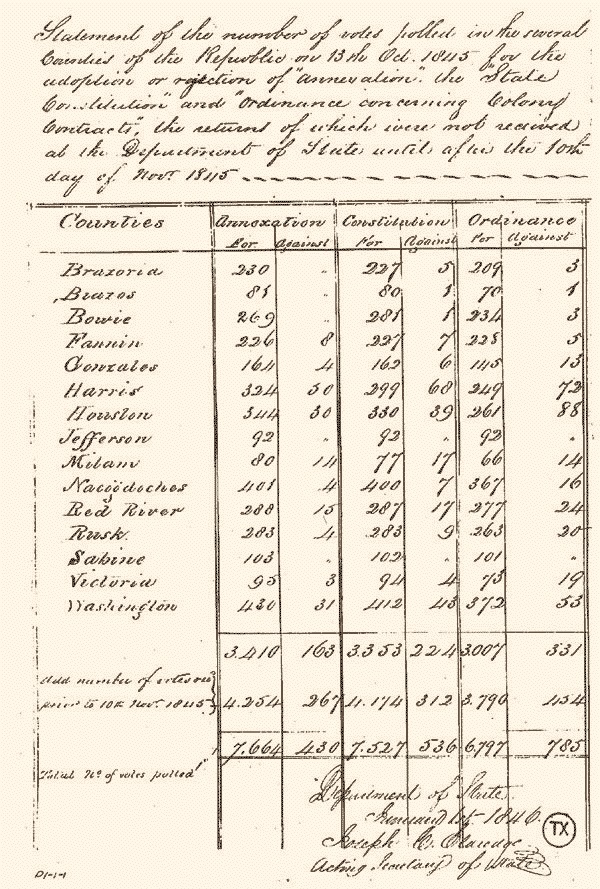 Statement of the number of votes polled in the several
Counties of the Republic on 13th Oct. 1845 for the
adoption or rejection of "annexation", the "State
Constitution" and "Ordinance concerning Colony
Contracts", the returns of which were not received
at the Department of State until after the 10th
day of Novr 1845
Counties Annexation Constitution Ordinance
For Against For Against For Against
Brazoria 230 " 227 5 209 3
Brazos 81 " 80 1 70 1
Bowie 269 " 281 1 234 3
Fannin 226 8 227 7 225 5
Gonzales 164 4 162 6 145 13
Harris 324 50 299 68 249 72
Houston 344 30 330 39 261 88
Jefferson 92 " 92 " 92 "
Milam 80 14 77 17 66 14
Nacogdoches 401 4 400 7 367 16
Red River 288 15 287 17 277 24
Rusk 283 4 283 9 263 20
Sabine 103 " 102 " 101 "
Victoria 95 3 94 4 73 19
Washington 430 31 412 43 372 53
3.410 163 3.353 224 3007 331
Add number of votes
prior to 10th Novr 1845 4.254 267 4.174 312 3.790 454
7.664 430 7.527 536 6797 785
Total No of votes polled
Department of State
January 1st 1846
Joseph C. Eldredge
Acting Secretary of State
TX
D1-1-1